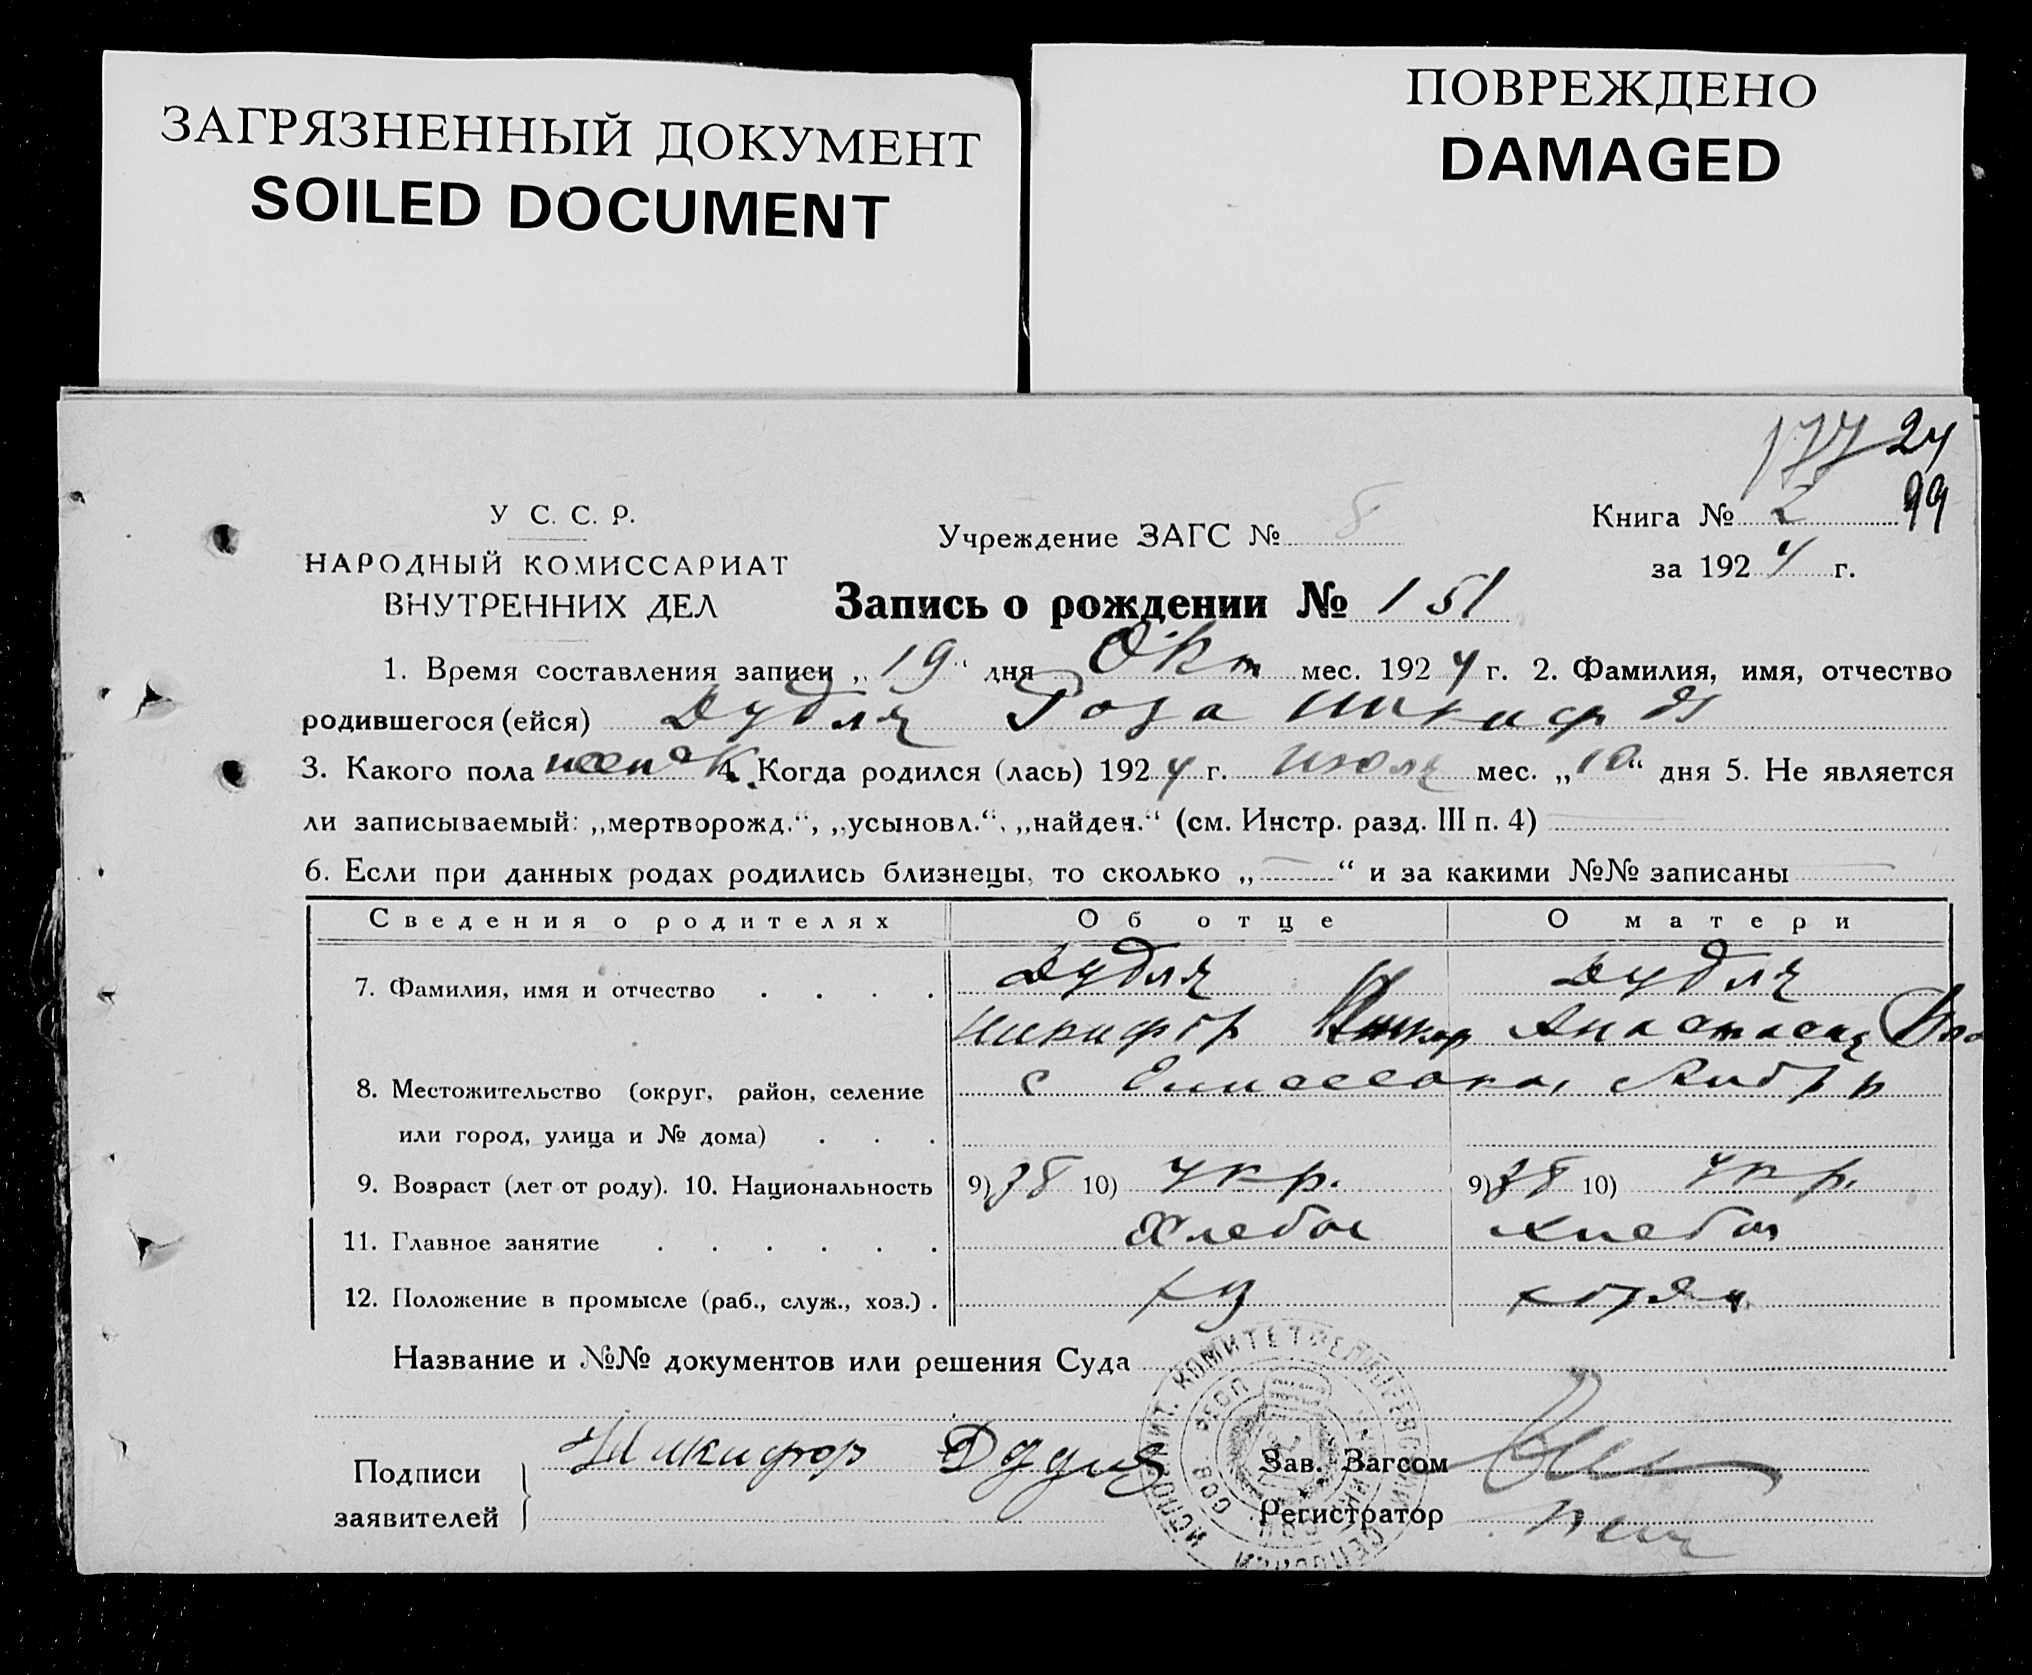 ЗАГРЯЗНЕННЫЙ ДОКУМЕНТ
SOILED DOCUMENT
ПОВРЕЖДЕНО
DAMAGED
177 24
99
У С. С. Р.
НАРОДНЫЙ КОМИССАРИАТ
ВНУТРЕННИХ ДЕЛ
Учреждение ЗАГС № 8
Книга № 2
за 1924 г.
Запись о рождении № 151
1. Время составления записи „19“ дня Окт мес. 1924 г. 2. Фамилия, имя, отчество
родившегося (ейся) Дудля
3. Какого пола женск 4. Когда родился (лась) 1924 г. июля мес. „10“ дня 5. Не является
ли записываемый: „мертворожд.“, „усыновл.“, „найден.“ (см. Инстр. разд. III п. 4)
6. Если при данных родах родились близнецы, то сколько „ “ и за какими №№ записаны
Сведения о родителях Об отце О матери
7. Фамилия, имя и отчество Дудля Дудля
Никифор Анастасия
8. Местожительство (округ, район, селение с Елисеевка
или город, улица и № дома)
9. Возраст (лет от роду). 10. Национальность 9) 38 10) укр. 9) 38 10) укр.
11. Главное занятие Хлебоп хлебоп
12. Положение в промысле (раб., служ., хоз.)
Название и №№ документов или решения Суда
Подписи
заявителей
Никифор Дудля
Зав. Загсом
Регистратор